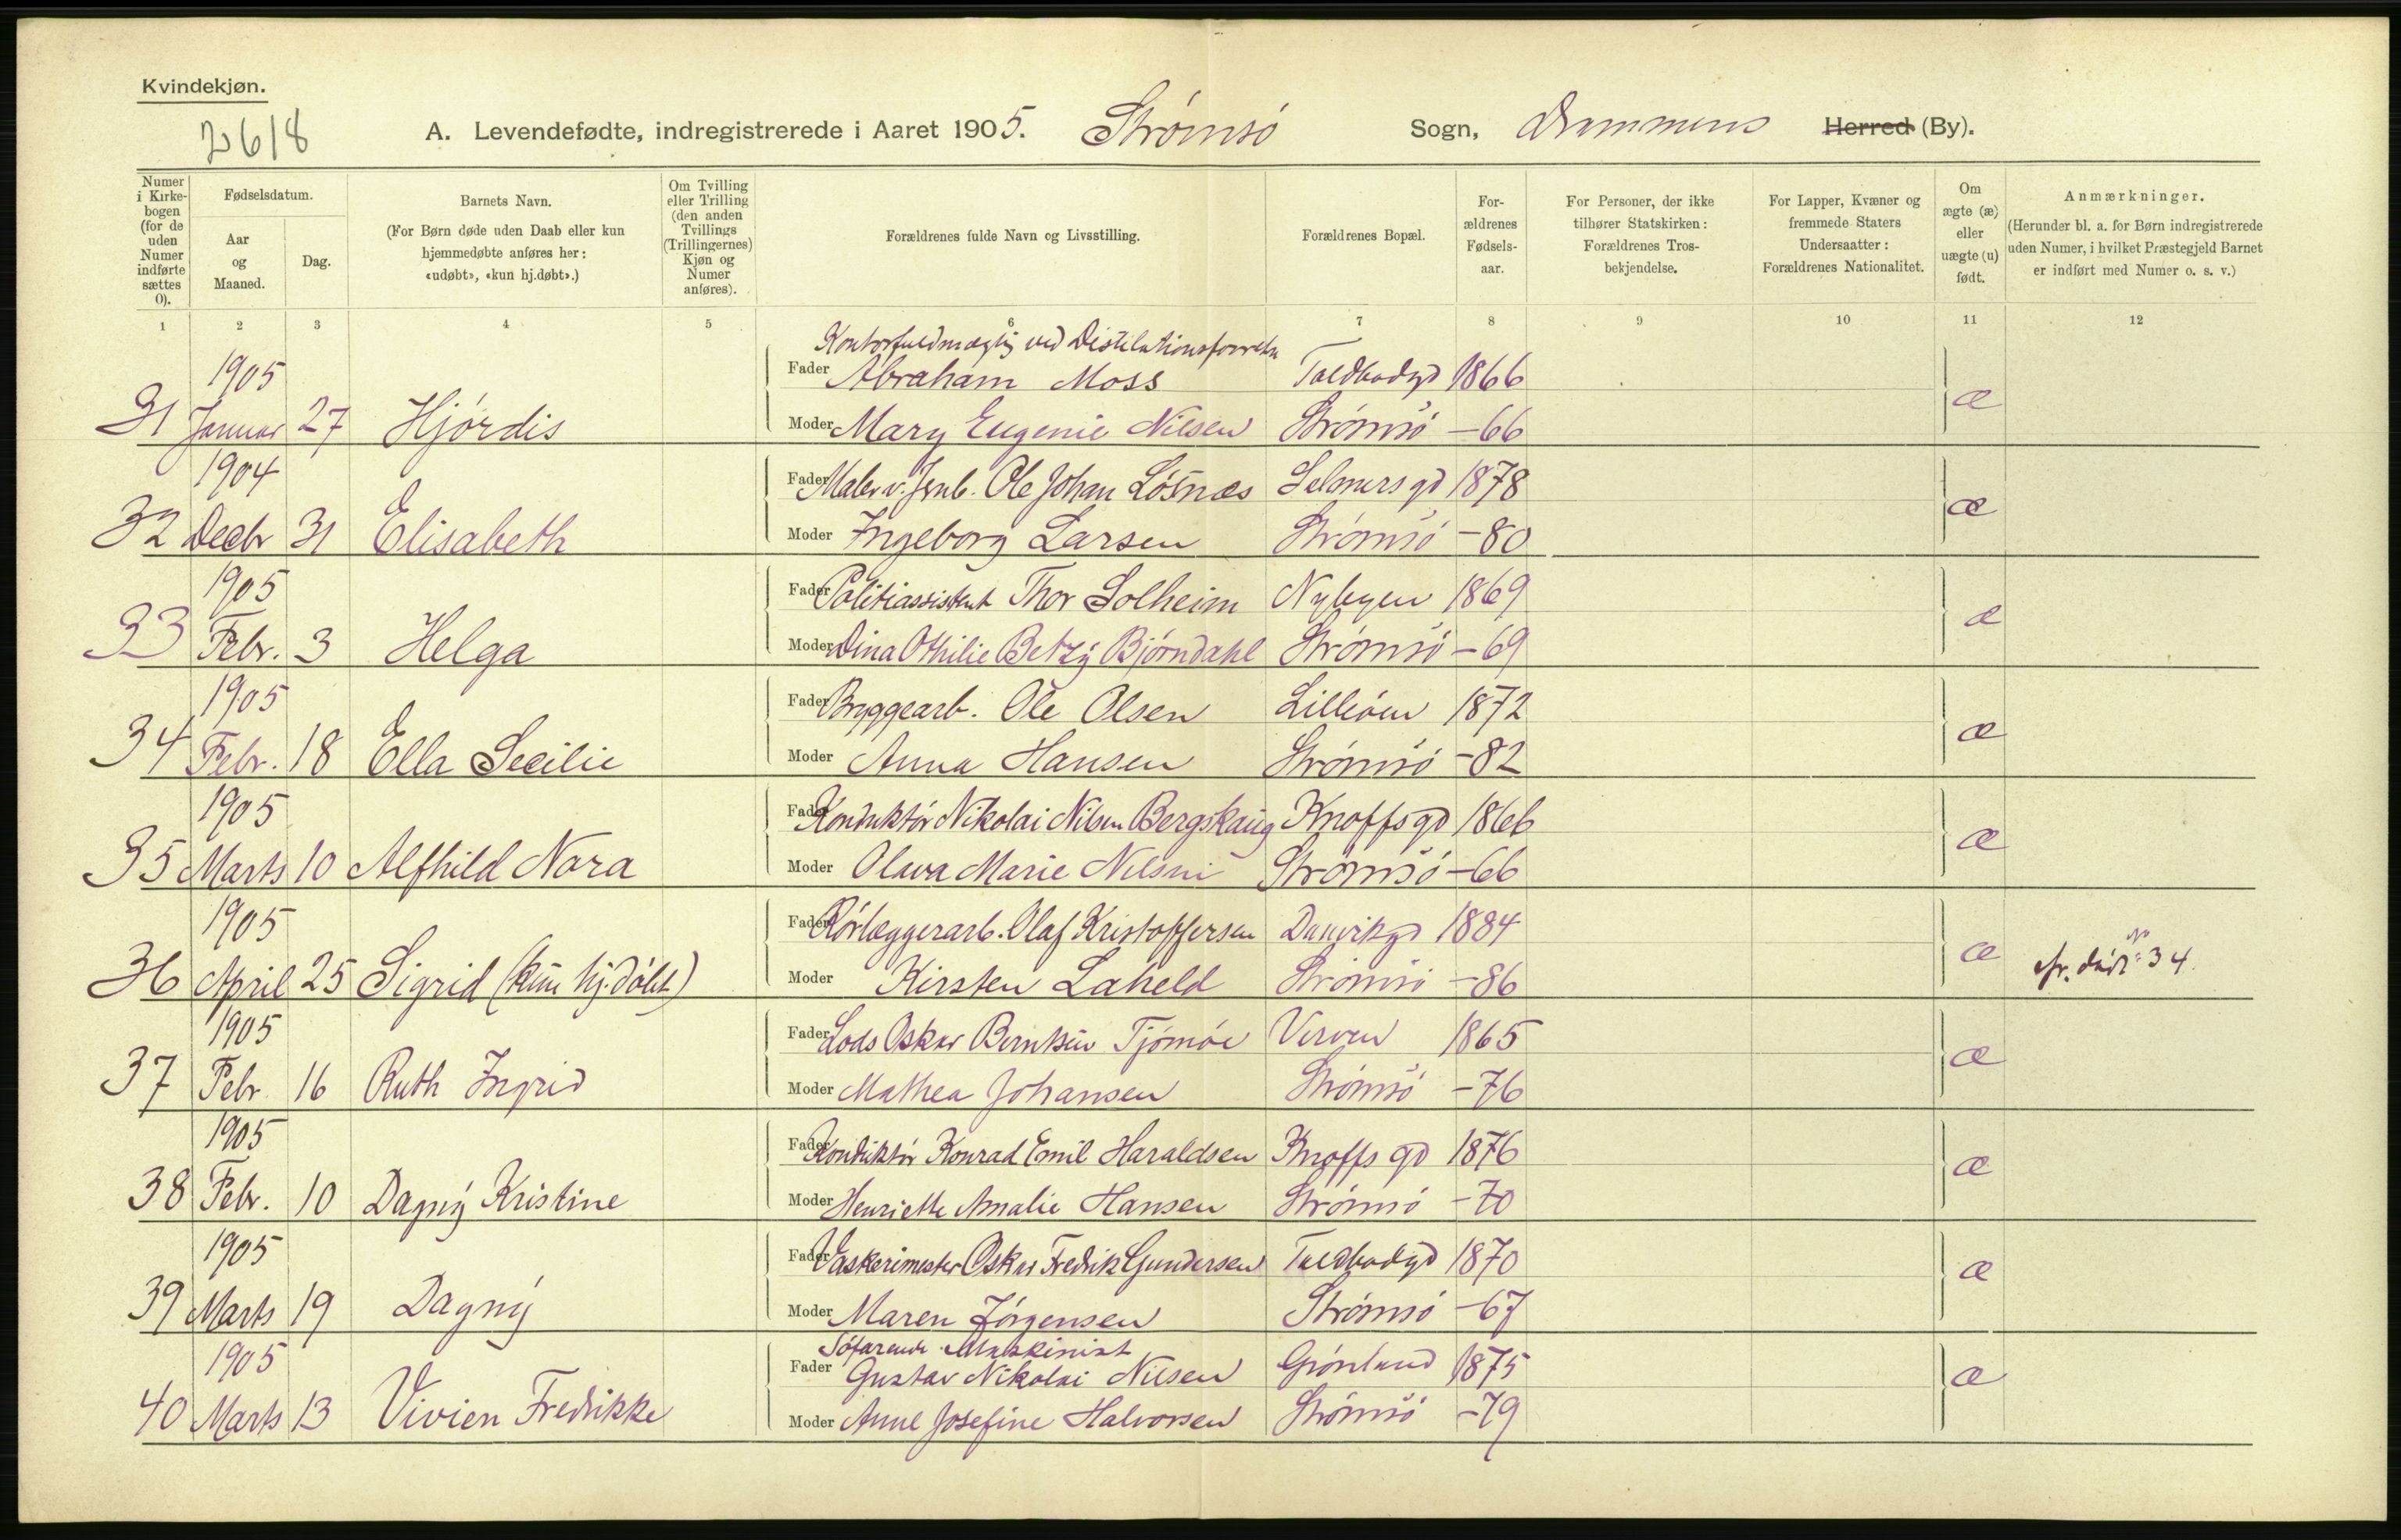 Kvindekjøn.
2618
A. Levendefødte, indregistrerede i Aaret 1905. Strømsø Sogn, Drammens Herred (By).
Numer i Kirkebogen (for de uden Numer indførte sættes 0).
Fødselsdatum.
Aar og Maaned.
Dag.
Barnets Navn.
(For Børn døde uden Daab eller kun hjemmedøbte anføres her: «udøbt», «kun hj.døbt».)
Om Tvilling eller Trilling (den anden Tvillings (Trillingernes) Kjøn og Numer anføres).
Forældrenes fulde Navn og Livsstilling.
Forældrenes Bopæl.
Forældrenes Fødselsaar.
For Personer, der ikke tilhører Statskirken: Forældrenes Trosbekjendelse.
For Lapper, Kvæner og fremmede Staters Undersaatter: Forældrenes Nationalitet.
Om ægte (æ) eller uægte (u) født.
Anmærkninger.
(Herunder bl. a. for Børn indregistrerede uden Numer, i hvilket Præstegjeld Barnet er indført med Numer o. s. v.)
1 2 3 4 5 6 7 8 9 10 11 12
Kontorfuldmægtig ved Distilationsforretn
1905 Fader Abraham Moss Toldbodgd 1866
31 Januar 27 Hjørdis Moder Mary Eugenie Nilsen Strømsø -66 æ
1904 Fader Maler v. Jernb. Ole Johan Løsnæs Selmersgd 1878
32 Decbr 31 Elisabeth Moder Ingeborg Larsen Strømsø -80 æ
1905 Fader Politiassistent Thor Solheim Nybyen 1869
33 Febr. 3 Helga Moder Dina Othilie Betzy Bjørndahl Strømsø -69 æ
1905 Fader Bryggearb. Ole Olsen Lilleøen 1872
34 Febr. 18 Ella Secilie Moder Anna Hansen Strømsø -82 æ
1905 Fader Konduktør Nikolai Nilsen Bergskaug Knoffsgd 1866
35 Marts 10 Alfhild Nora Moder Olava Marie Nilsen Strømsø -66 æ
1905 Fader Rørlæggerarb. Olaf Kristoffersen Danvikgd 1884
36 April 25 Sigrid (kun hj. døbt) Moder Kirsten Laheld Strømsø -86 æ cfr. død no 34.
1905 Fader Lods Oskar Berntsen Tjømøe Verven 1865
37 Febr 16 Ruth Ingrid Moder Mathea Johansen Strømsø -76 æ
1905 Fader Konduktør Konrad Emil Haraldsen Knoffs gd 1876
38 Febr. 10 Dagny Kristine Moder Henriette Amalie Hansen Strømsø -70 æ
1905 Fader Vaskerimester Oskar Fredrik Gundersen Toldbodgd 1870
39 Marts 19 Dagny Moder Maren Jørgensen Strømsø -67 æ
Søfarende Maskinist
1905 Fader Gustav Nikolai Nilsen Grønland 1875
40 Marts 13 Vivien Fredrikke Moder Anne Josefine Halvorsen Strømsø -79 æ